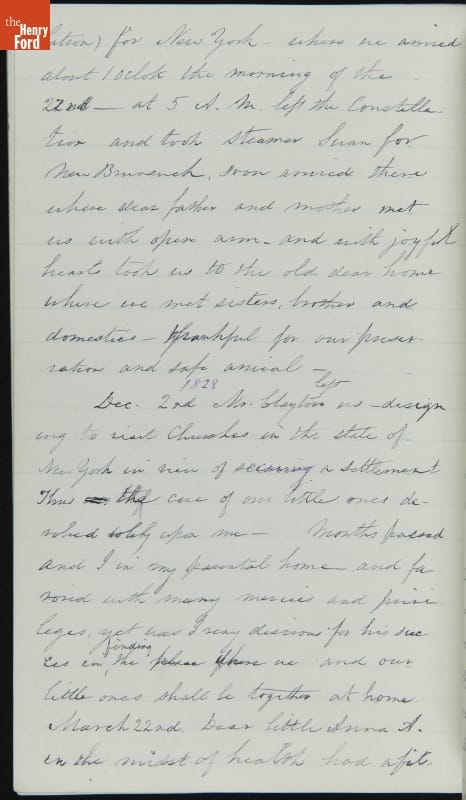 the
Henry
Ford
lation) for New York - where we arrived
about 1 oclok the morning of the
22nd - at 5 A. M. left the Constella-
tion and took steamer Swan for
New Brunswick, soon arrived there
where dear father and mother met
us with open arm - and with joyful
hearts took us to the old dear home
where we met sisters, brother and
domestics - thankful for our preser-
vation and safe arrival -
1828 left
Dec. 2nd Mr. Clayton us - design
ing to visit Churches in the state of
New York in view of a settlement
Thus the care of our little ones de-
volved solely upon me - Months passed
and I in my parental home - and fa
vored with many mercies and privi
leges, yet was I very desirous for his suc
finding
ces in, the place where we and our
little ones shall be together at home.
March 22nd. Dear little Anna A.
in the midst of health had a fit.